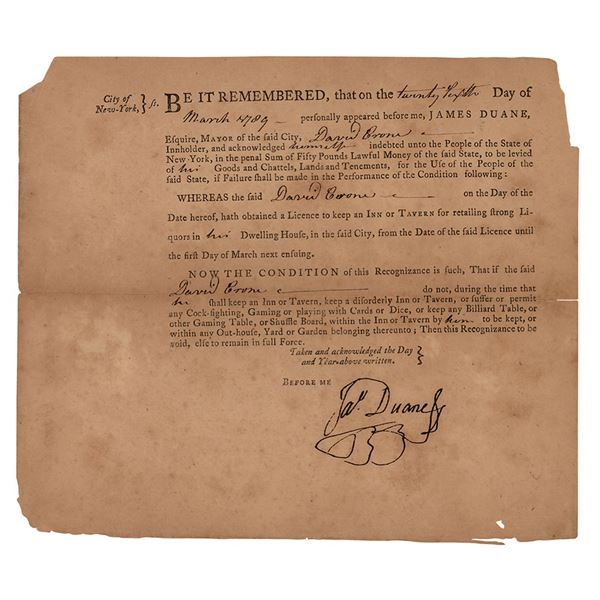 City of
New-York, } ss. BE IT REMEMBERED, that on the twenty sixth Day of
March 1789 personally appeared before me, JAMES DUANE,
Esquire, MAYOR of the said City, David Crone
Innholder, and acknowledged himself indebted unto the People of the State of
New-York, in the penal Sum of Fifty Pounds Lawful Money of the said State, to be levied
of his Goods and Chattels, Lands and Tenements, for the Use of the People of the
said State, if Failure shall be made in the Performance of the Condition following:
WHEREAS the said David Crone on the Day of the
Date hereof, hath obtained a Licence to keep an INN or TAVERN for retailing strong Li-
quors in his Dwelling House, in the said City, from the Date of the said Licence until
the first Day of March next ensuing.
NOW THE CONDITION of this Recognizance is such, That if the said
David Crone do not, during the time that
he shall keep an Inn or Tavern, keep a disorderly Inn or Tavern, or suffer or permit
any Cock-fighting, Gaming or playing with Cards or Dice, or keep any Billiard Table, or
other Gaming Table, or Shuffle Board, within the Inn or Tavern by him to be kept, or
within any Out-house, Yard or Garden belonging thereunto; Then this Recognizance to be
void, else to remain in full Force.
Taken and acknowledged the Day
and Year above written. }
BEFORE ME
Jas. Duane